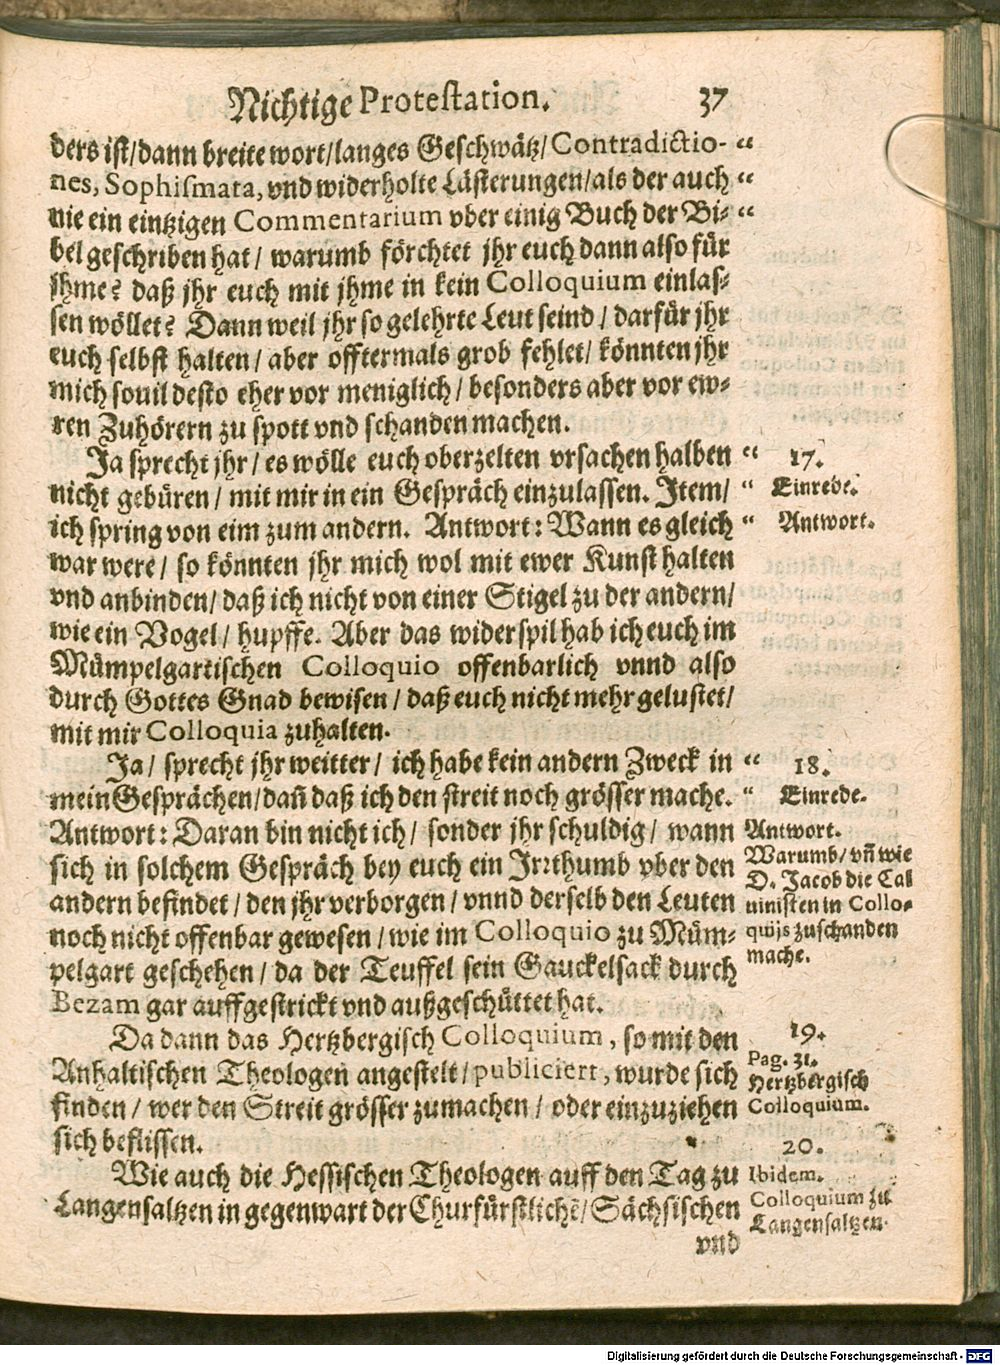 Nichtige Protestation. 37
ders ist/dann breite wort/langes Geschwätz/Contradictio- “
nes, Sophismata, vnd widerholte Lästerungen/als der auch “
nie ein eintzigen Commentarium vber einig Buch der Bi- “
bel geschriben hat/ warumb förchtet jhr euch dann also für
jhme? daß jhr euch mit jhme in kein Colloquium einlas-
sen wöllet? Dann weil jhr so gelehrte Leut seind/ darfür jhr
euch selbst halten/ aber offtermals grob fehlet/ könnten jhr
mich souil desto eher vor meniglich/ besonders aber vor ew-
ren Zuhörern zu spott vnd schanden machen.
Ja sprecht jhr/ es wölle euch oberzelten vrsachen halben “
nicht gebüren/ mit mir in ein Gespräch einzulassen. Item/ “
ich spring von eim zum andern. Antwort: Wann es gleich “
war were/ so könnten jhr mich wol mit ewer Kunst halten
vnd anbinden/ daß ich nicht von einer Stigel zu der andern/
wie ein Vogel/ hupffe. Aber das widerspil hab ich euch im
Mümpelgartischen Colloquio offenbarlich vnnd also
durch Gottes Gnad bewisen/ daß euch nicht mehr gelustet/
mit mir Colloquia zuhalten.
Ja/ sprecht jhr weitter/ ich habe kein andern Zweck in “
mein Gesprächen/dañ daß ich den streit noch grösser mache. “
Antwort: Daran bin nicht ich/ sonder jhr schuldig/ wann
sich in solchem Gespräch bey euch ein Irrthumb vber den
andern befindet/ den jhr verborgen/ vnnd derselb den Leuten
noch nicht offenbar gewesen/ wie im Colloquio zu Müm-
pelgart geschehen/ da der Teuffel sein Gauckelsack durch
Bezam gar auffgestrickt vnd außgeschüttet hat.
Da dann das Hertzbergisch Colloquium, so mit den
Anhaltischen Theologen angestelt/ publiciert, wurde sich
finden/ wer den Streit grösser zumachen/ oder einzuziehen
sich beflissen.
Wie auch die Hessischen Theologen auff den Tag zu
Langensaltzen in gegenwart der Churfürstlichẽ/Sächsischen
vnd
17.
Einrede.
Antwort.
18.
Einrede.
Antwort.
Warumb/ vñ wie
D. Jacob die Cal
uinisten in Collo-
quijs zuschanden
mache.
19.
Pag. 31.
Hertzbergisch
Colloquium.
20.
Ibidem.
Colloquium zu
Langensaltzen.
Digitalisierung gefördert durch die Deutsche Forschungsgemeinschaft - DFG